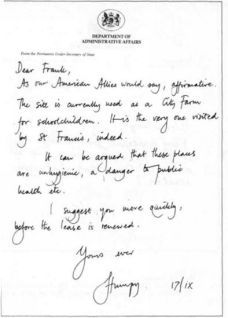 DEPARTMENT OF
ADMINISTRATIVE AFFAIRS
From the Permanent Under-Secretary of State
Dear Frank,
As our American Allies would say, affirmative.
The site is currently used as a City Farm
for schoolchildren. It is the very one visited
by St Francis, indeed.
It can be argued that these places
are unhygienic, a danger to public
health etc.
I suggest you move quickly,
before the lease is renewed.
Yours ever
Humpy. 17/IX